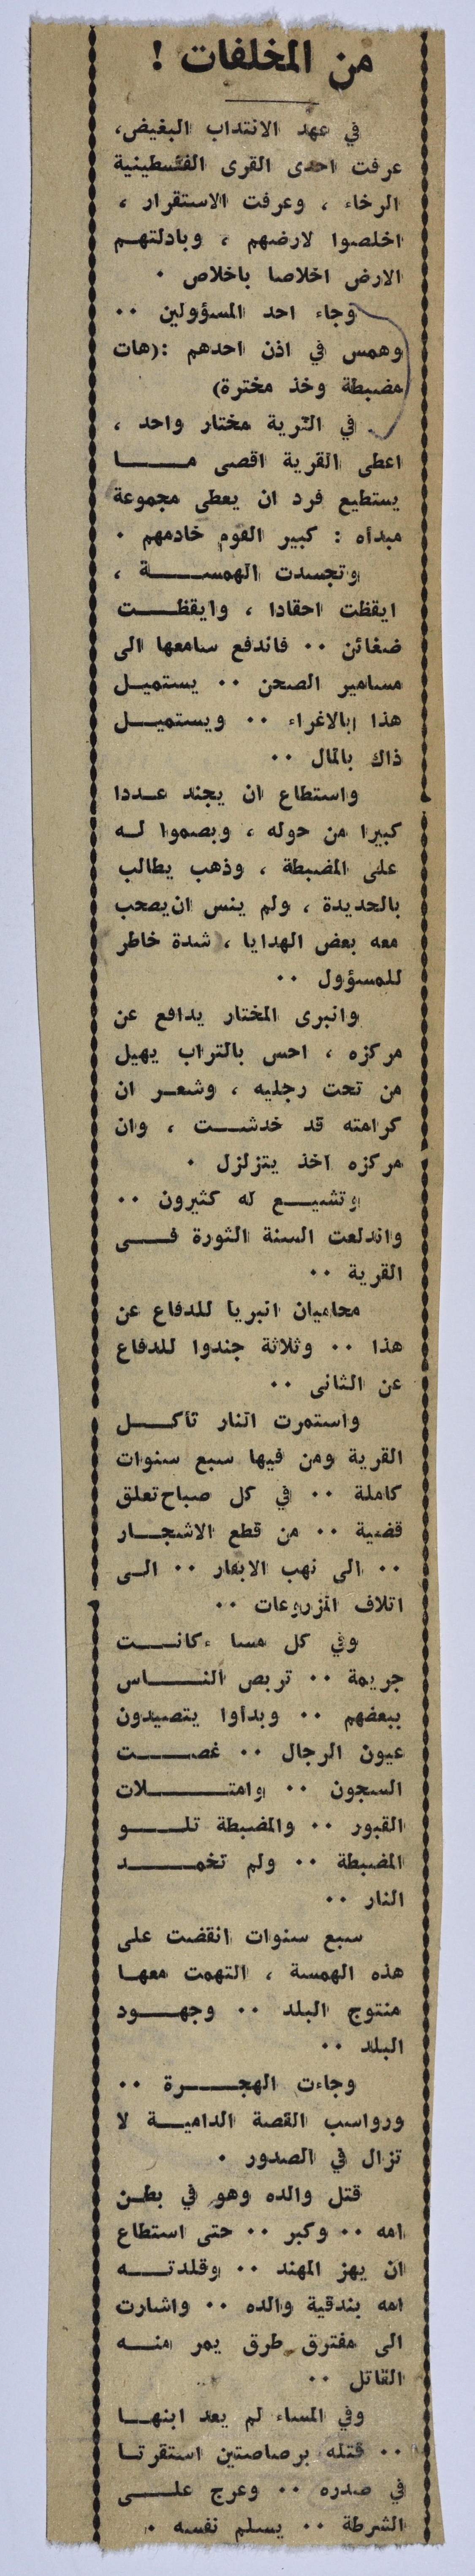 من المخلفات !
في عهد الانتداب البغيض،
عرفت احدى القرى الفلسطينية
الرخاء ، وعرفت الاستقرار ،
اخلصوا لارضهم ، وبادلتهم
الارض اخلاصا باخلاص .
وجاء احد المسؤولين ..
وهمس في اذن احدهم :(هات
مضبطة وخذ مخترة)
في القرية مختار واحد ،
اعطى القرية اقصى مــــا
يستطيع فرد ان يعطى مجموعة
مبدأه : كبير القوم خادمهم .
وتجسدت الهمســـة ،
ايقظت احقادا ، وايقظــت
ضغائن .. فاندفع سامعها الى
مسامير الصحن .. يستميــل
هذا بالاغراء .. ويستميــل
ذاك بالمال ..
واستطاع ان يجند عــددا
كبيرا من حوله ، وبصموا لـه
على المضبطة ، وذهب يطالب
بالحديدة ، ولم ينس ان يصحب
معه بعض الهدايا ، شدة خاطر
للمسؤول ..
وانبرى المختار يدافع عن
مركزه ، احس بالتراب يهيل
من تحت رجليه ، وشعـر ان
كرامته قد خدشــت ، وان
مركزه اخذ يتزلزل .
وتشيــع له كثيرون ..
واندلعت السنة الثورة فــى
القرية ..
محاميان انبريا للدفاع عن
هذا .. وثلاثة جندوا للدفاع
عن الثانى ..
واستمرت النار تأكــل
القرية ومن فيها سبع سنوات
كاملة .. في كل صباح تعلق
قضية .. من قطع الاشجــار
.. الى نهب الابقار .. الــى
اتلاف المزروعات ..
وفي كل مساء كانــت
جريمة .. تربص النــــاس
ببعضهم .. وبدأوا يتصيدون
عيون الرجال .. غصــت
السجون .. وامتــــلات
القبور .. والمضبطة تلــو
المضبطة .. ولم تخمــد
النار ..
سبع سنوات انقضت على
هذه الهمسة ، التهمت معهـا
منتوج البلد .. وجهــود
البلد ..
وجاءت الهجــرة ..
ورواسب القصة الداميــة لا
تزال في الصدور .
قتل والده وهو في بطـن
امه .. وكبر .. حتى استطاع
ان يهز المهند .. وقلدتــه
امه بندقية والده .. واشارت
الى مفترق طرق يمر منــه
القاتل ..
وفي المساء لم يعد ابنهـا
.. قتله برصاصتين استقرتـا
في صدره .. وعرج علــى
الشرطة .. يسلم نفسه .